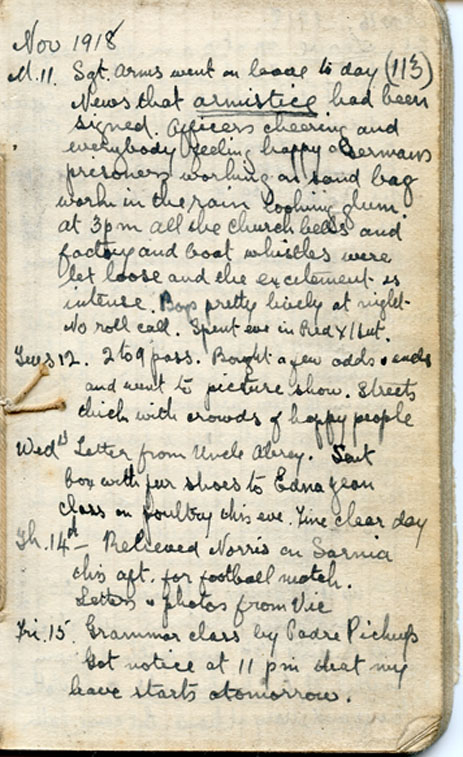 Nov 1918
M.11. Sgt. Arms went on leave to day (113)
News that armistice had been
signed. Officers cheering and
everybody feeling happy & Germans
prisoners working on sand bag
work in the rain looking glum.
at 3pm all the church bells and
factory and boat whistles were
let loose and the excitement is
intense. Boys pretty lively at night.
No roll call. Spent eve in Red X Hut.
Tues 12. 2 to 9 pass. Bought a few odds & ends
and went to picture show. Streets
thick with crowds of happy people
Wed Letter from Uncle. Sent
box with fur shoes to Edna Jean
class on poultry this eve. Fine clear day
Th. 14th - Relieved Norris on Sarnia
this aft. for football match.
Letters & photos from Vic
Fri. 15. Grammar class by Padre Pickup
Got notice at 11 pm that my
leave starts tomorrow.